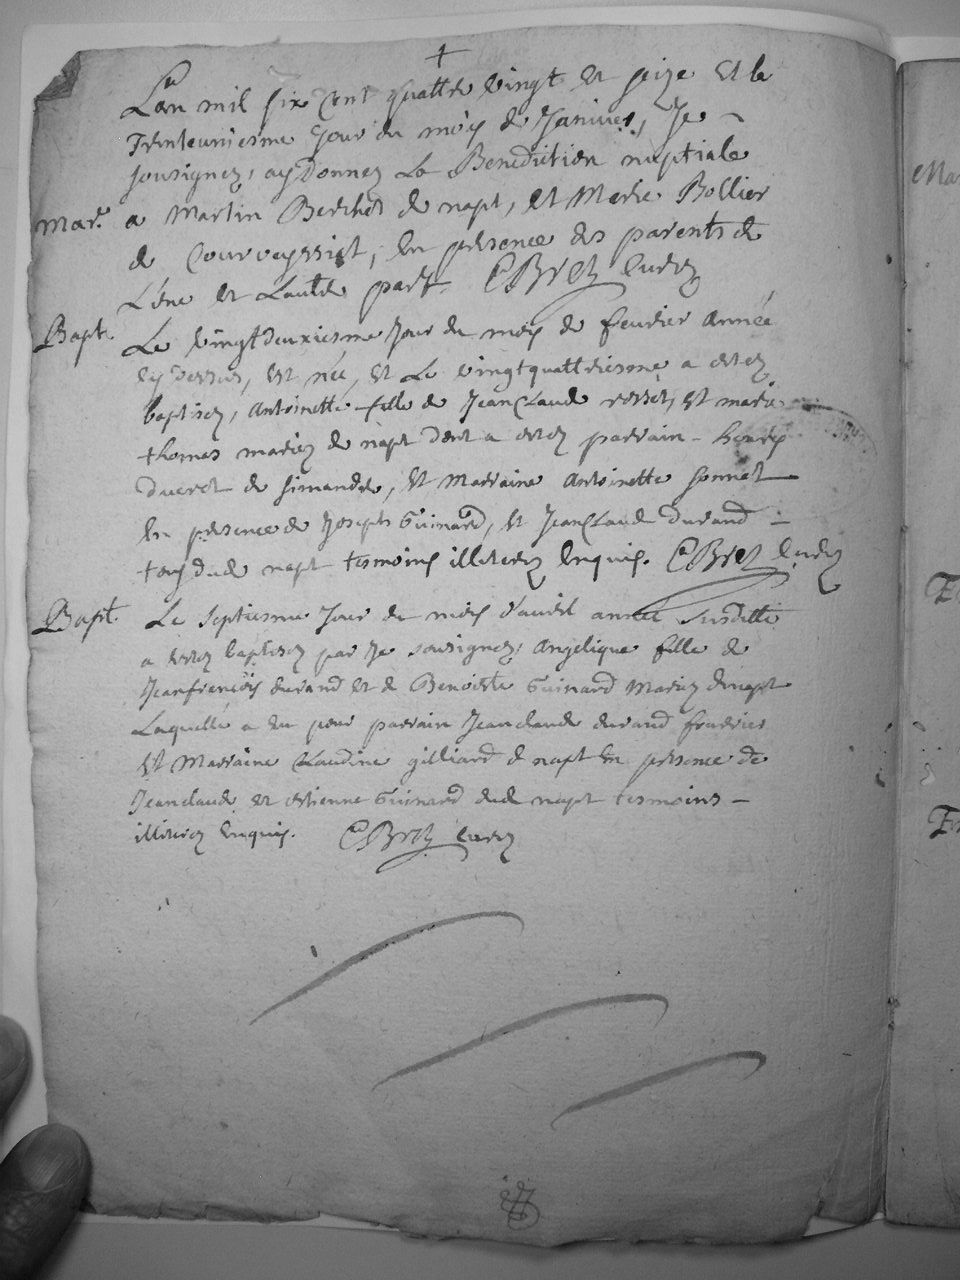 L'an mil six cent quattre vingt et seize et le
Trenteuniesme Jour du mois de Janvier, Je
sousignez, ay donnez La Benediction nuptiale
Mar. a Martin Berchet de napt, et Marie Bollier
de Courveyssiet, en presence des parents de
L'une et Lautre part. C Bret curez
Bapt. Le vingt deuxiesme Jour du mois de feuvrier année
cy dessus, est née, et Le vingtquattriesme a estez
baptisez, Antoinette fille de Jean Claude rosset, et marie
thomas mariez de napt dont a estez parrain
ducret de simandre, et Marraine Antoinette sonnet
en presence de Joseph Guinard, et Jean Claude durand
tous dud. napt tesmoins illiterez enquis. C Bret curez
Bapt. Le septiesme Jour du mois d'avril année susditte
a estez baptisez par Je sousignez, Angelique fille de
Jeanfrançois durand et de Benoiste Guinard Mariez de napt
Laquelle a eu pour parrain Jeanclaude durand
et Marraine Claudine gilliard de napt en presence de
Jeanclaude et estienne Guinard dud. napt tesmoins
illiterez enquis. C Bret curez